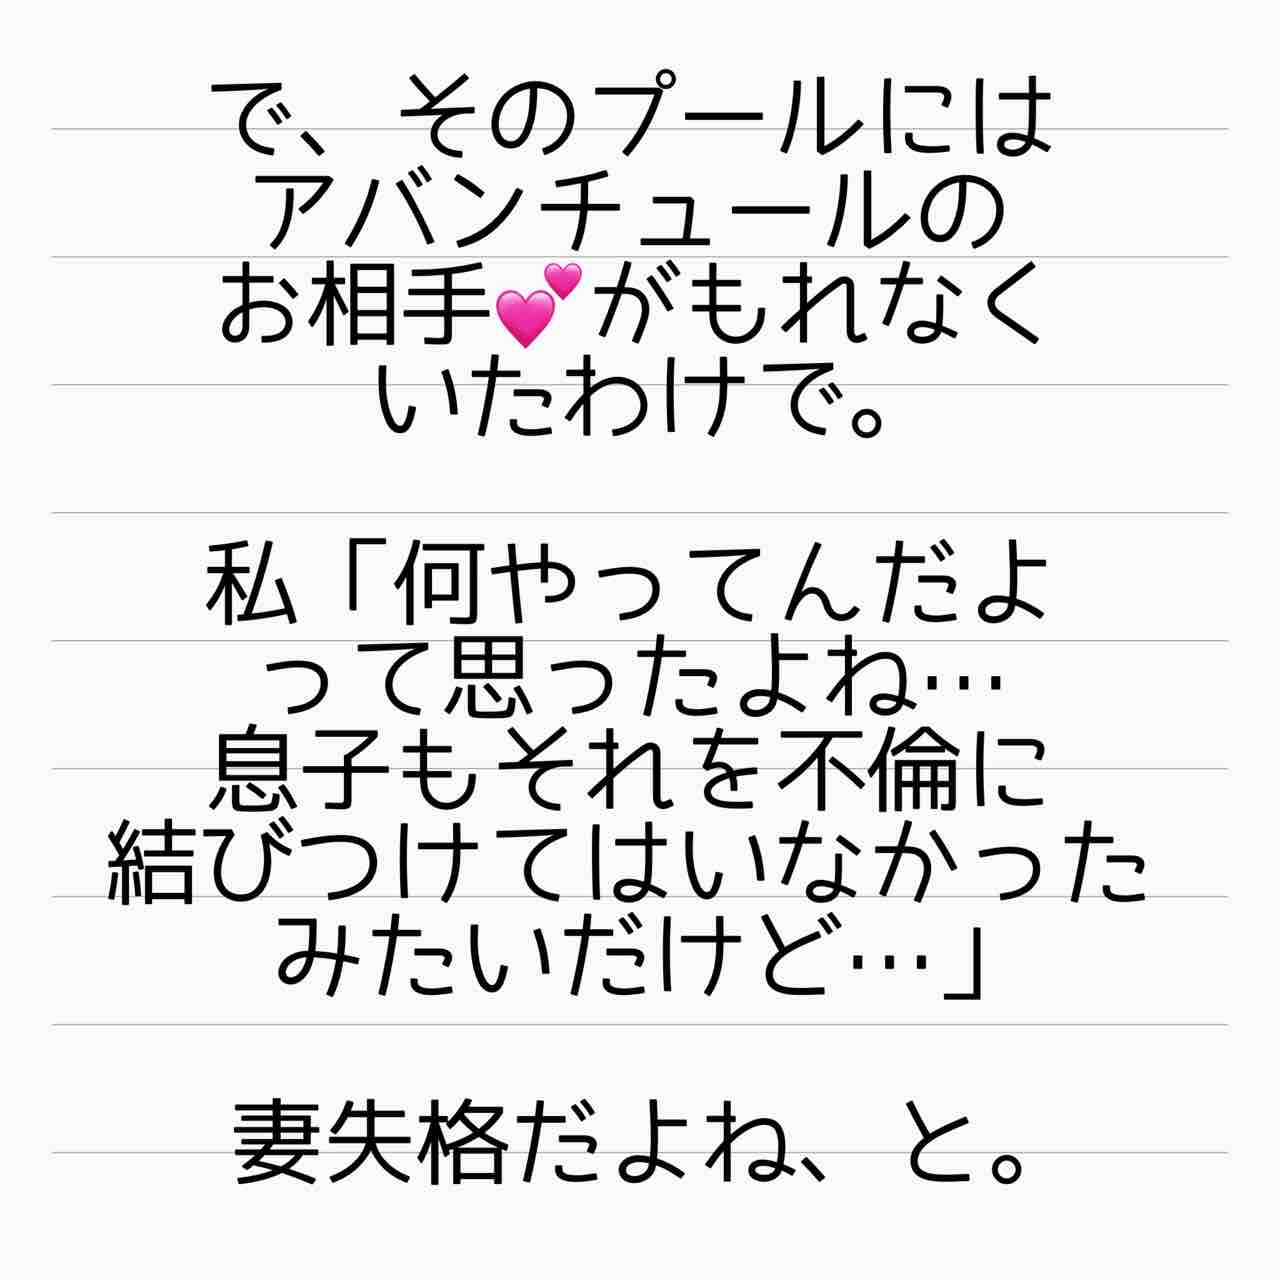 で、そのプールには
アバンチュールの
お相手💕がもれなく
いたわけで。
私「何やってんだよ
って思ったよね…
息子もそれを不倫に
結びつけてはいなかった
みたいだけど…」
妻失格だよね、と。